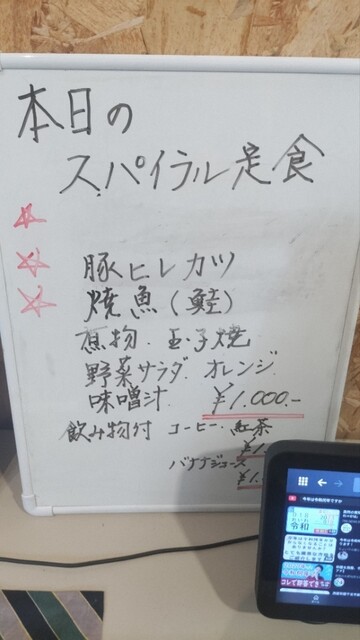 本日の
スパイラル定食
豚ヒレカツ
焼魚(鮭)
煮物．玉子焼
野菜サラダ．オレンジ．
味噌汁． ¥1.000.-
飲み物付 コーヒー．紅茶
¥1.
バナナジュース
¥1.
令和